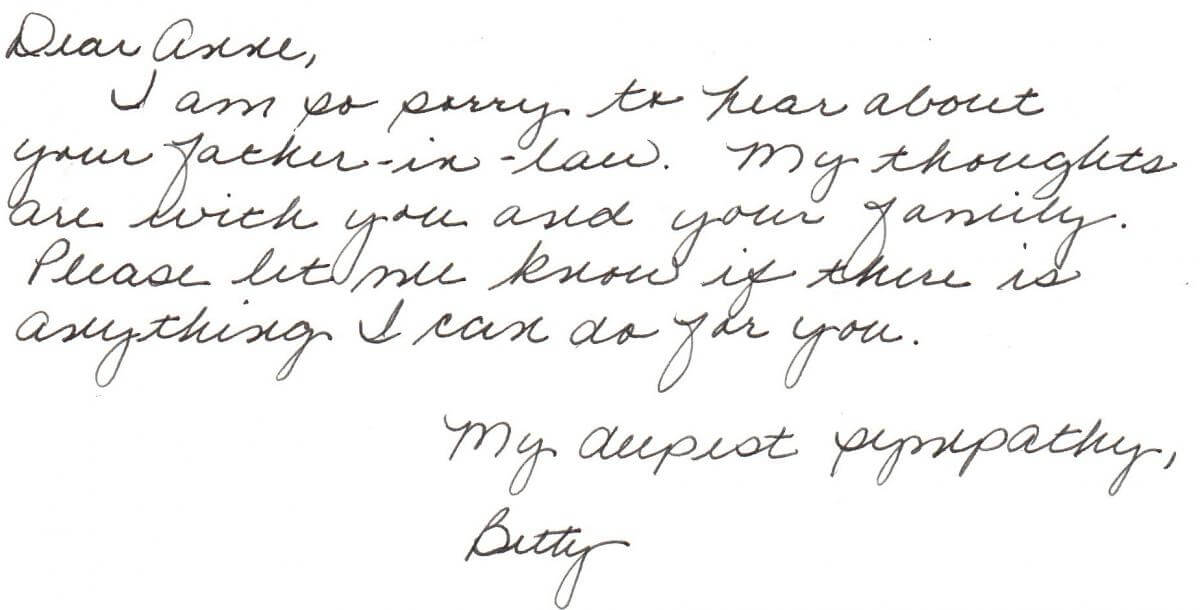 Dear Anne,
I am so sorry to hear about
your father-in-law. My thoughts
are with you and your family.
Please let me know if there is
anything I can do for you.
My deepest sympathy,
Betty